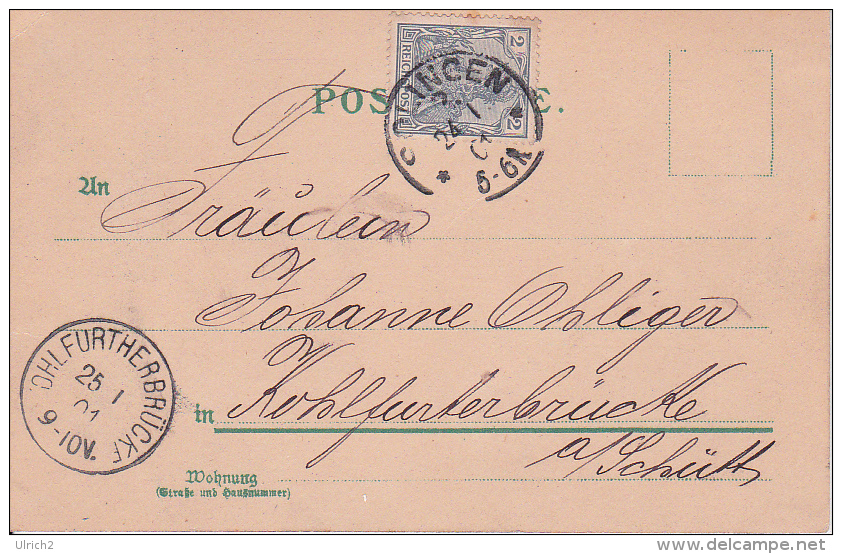 POS E.
REICHSPOST
2
2
SOLINGEN
24 1
01
5-6N
An
Fräulein
Johanne Ohliger
in Kohlfurterbrücke
a/Schütt
KOHLFURTHERBRÜCKE
25 1
01
9-10V.
Wohnung
(Straße und Hausnummer)
Ulrich2
www.delcampe.net